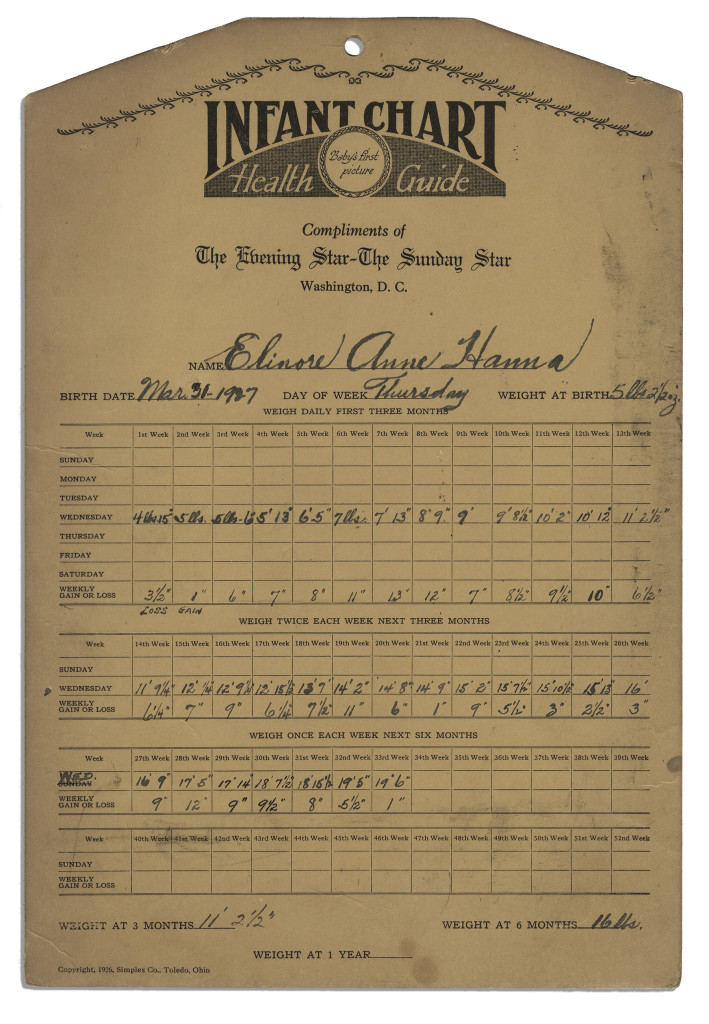 INFANT CHART
Baby's first picture
Health Guide
Compliments of
The Evening Star-The Sunday Star
Washington, D. C.
NAME Elinore Anne Hanna
BIRTH DATE Mar. 31-1927 DAY OF WEEK Thursday WEIGHT AT BIRTH 5 lbs 2 1/2 oz.
WEIGH DAILY FIRST THREE MONTHS
Week 1st Week 2nd Week 3rd Week 4th Week 5th Week 6th Week 7th Week 8th Week 9th Week 10th Week 11th Week 12th Week 13th Week
SUNDAY
MONDAY
TUESDAY
WEDNESDAY 4 lbs 15" 5 lbs. 5 lbs-6" 5' 13" 6' 5" 7 lbs. 7' 13" 8' 9" 9' 9' 8 1/2" 10' 2" 10' 12" 11' 2 1/2"
THURSDAY
FRIDAY
SATURDAY
WEEKLY GAIN OR LOSS 3 1/2" 1" 6" 7" 8" 11" 13" 12" 7" 8 1/2" 9 1/2" 10" 6 1/2"
LOSS GAIN
WEIGH TWICE EACH WEEK NEXT THREE MONTHS
Week 14th Week 15th Week 16th Week 17th Week 18th Week 19th Week 20th Week 21st Week 22nd Week 23rd Week 24th Week 25th Week 26th Week
SUNDAY
WEDNESDAY 11' 9 1/4" 12' 1/4" 12' 9 1/4" 12' 15 1/2" 13' 7" 14' 2" 14' 8" 14' 9" 15' 2" 15' 7 1/2" 15' 10 1/2" 15' 13" 16'
WEEKLY GAIN OR LOSS 6 3/4" 7" 9" 6 1/4" 7 1/2" 11" 6" 1" 9" 5 1/2" 3" 2 1/2" 3"
WEIGH ONCE EACH WEEK NEXT SIX MONTHS
Week 27th Week 28th Week 29th Week 30th Week 31st Week 32nd Week 33rd Week 34th Week 35th Week 36th Week 37th Week 38th Week 39th Week
WED. SUNDAY 16' 9" 17' 5" 17' 14" 18' 7 1/2" 18' 15 1/2 19' 5" 19' 6"
WEEKLY GAIN OR LOSS 9" 12" 9" 9 1/2" 8" 5 1/2" 1"
Week 40th Week 41st Week 42nd Week 43rd Week 44th Week 45th Week 46th Week 47th Week 48th Week 49th Week 50th Week 51st Week 52nd Week
SUNDAY
WEEKLY GAIN OR LOSS
WEIGHT AT 3 MONTHS 11' 2 1/2" WEIGHT AT 6 MONTHS 16 lbs.
WEIGHT AT 1 YEAR
Copyright, 1926, Simplex Co., Toledo, Ohio